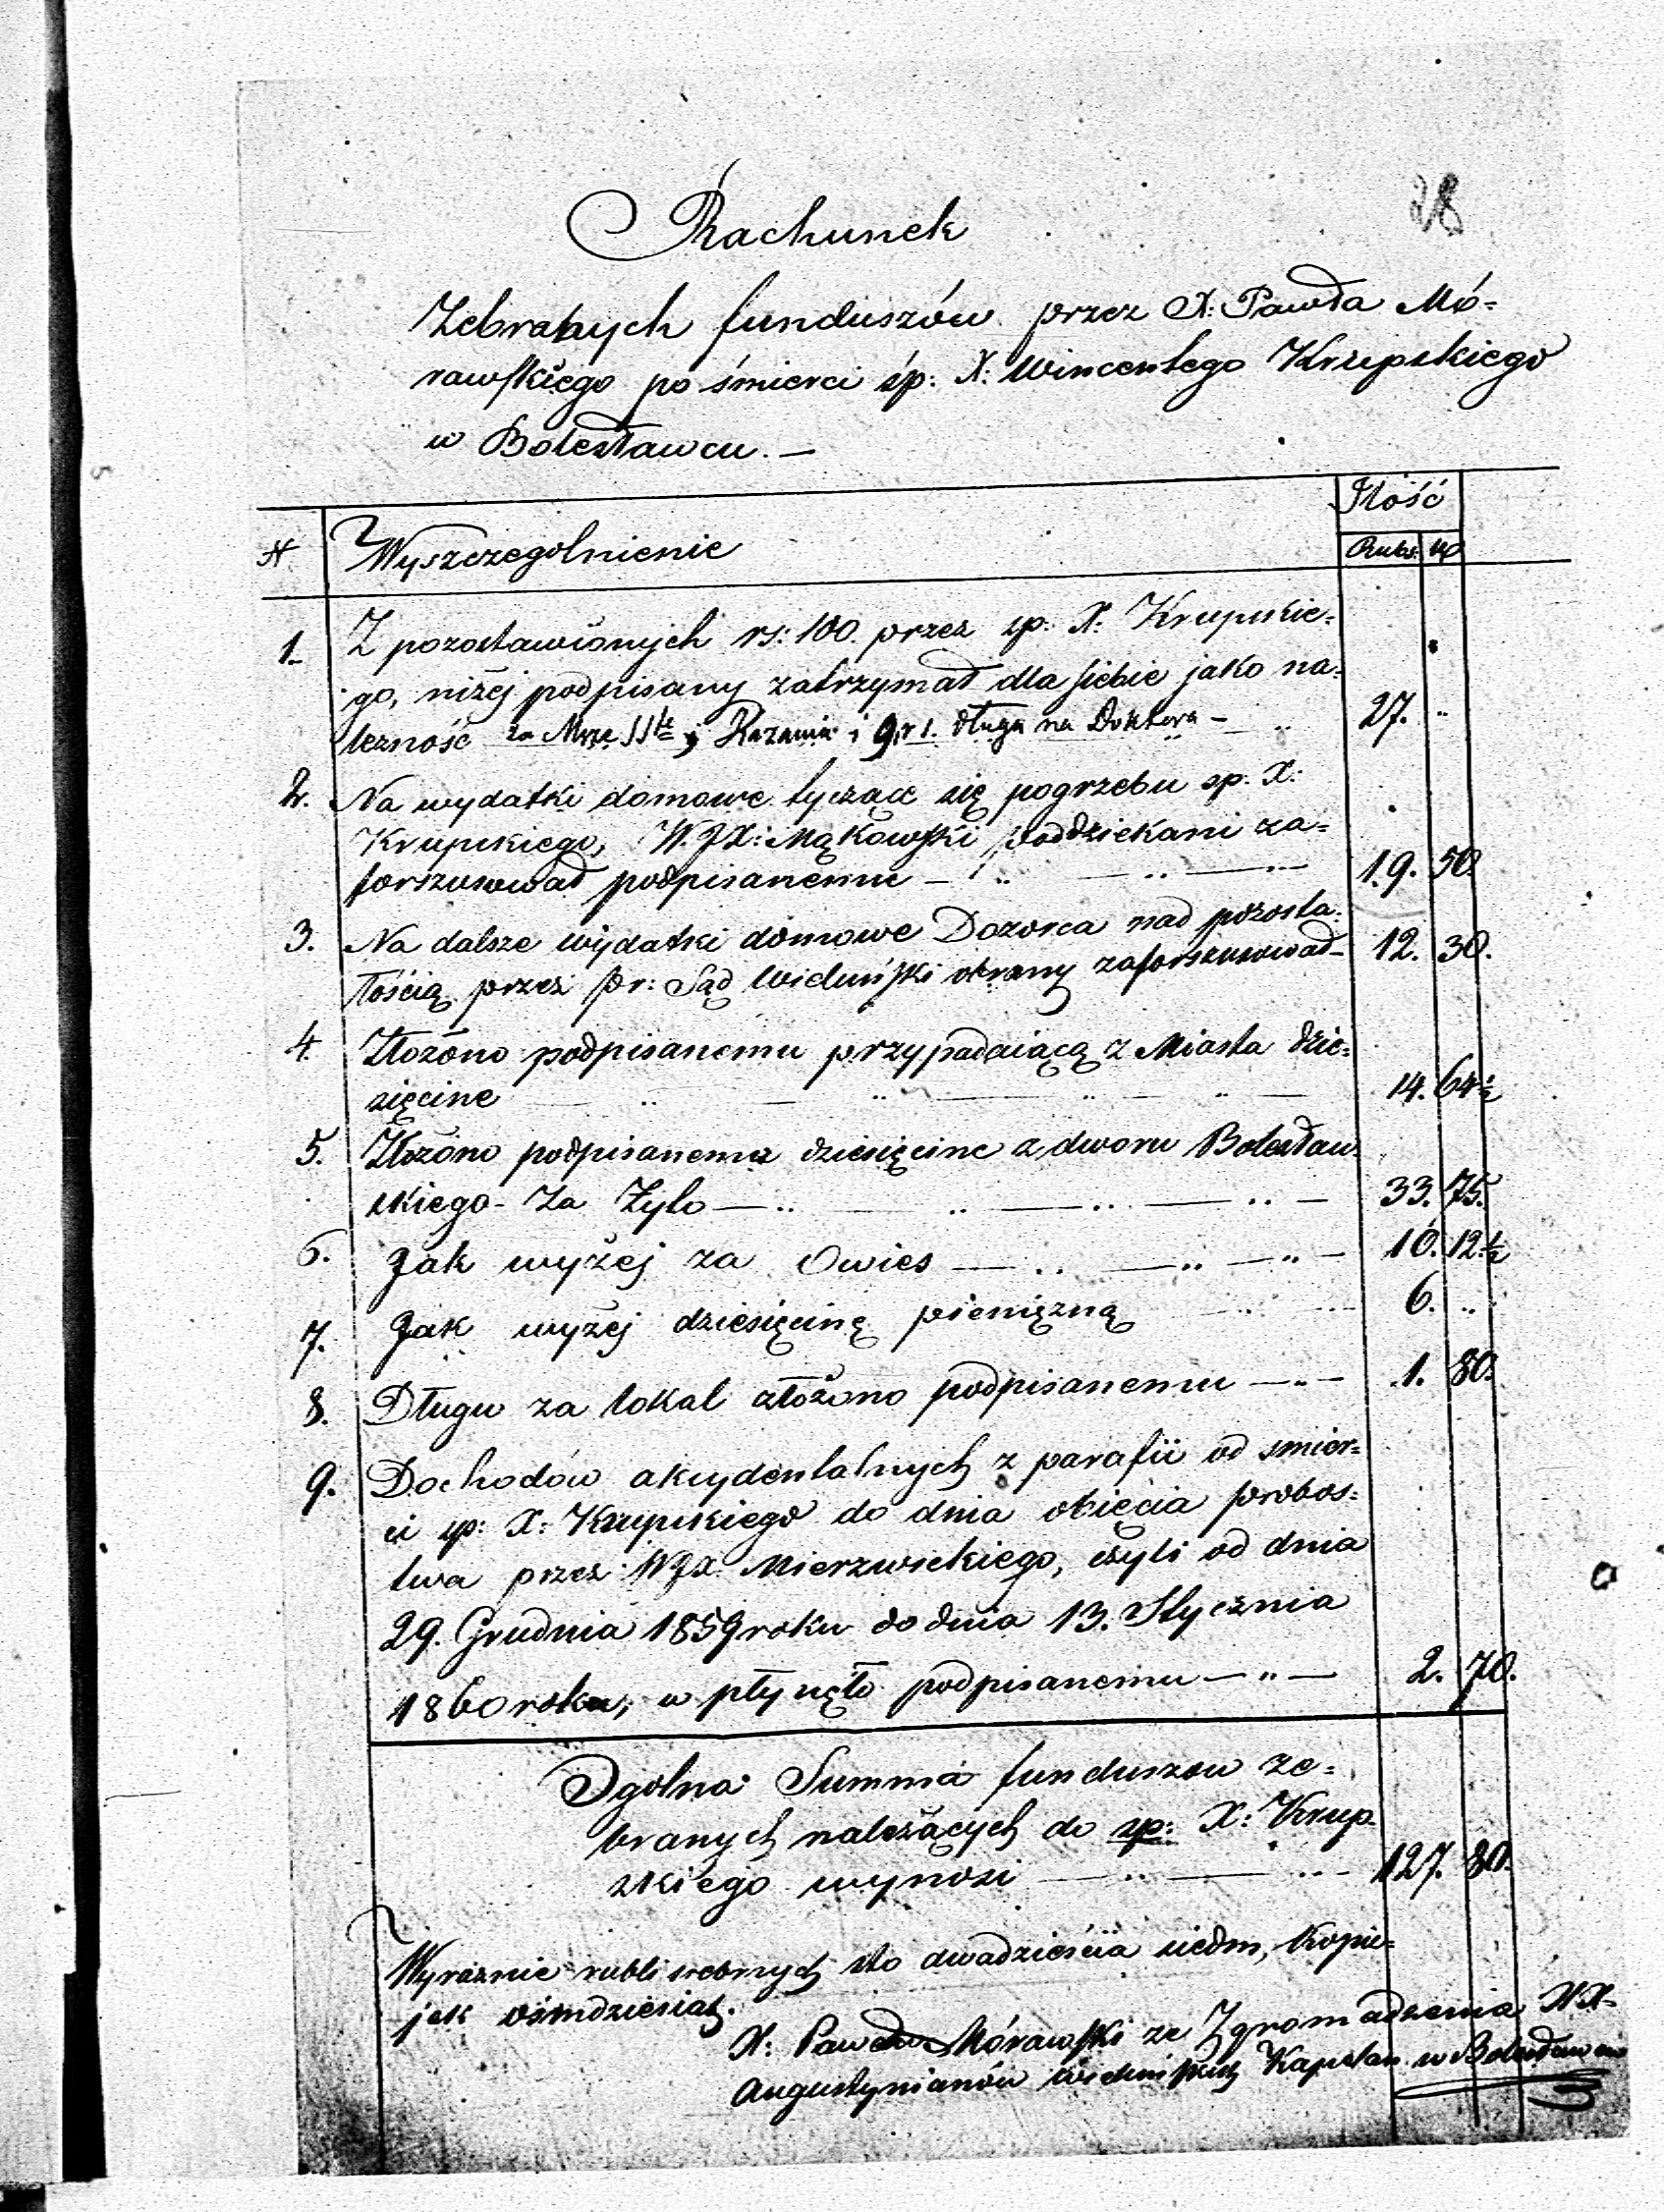 28
Rachunek
Zebranych funduszów przez X: Pawła Mó=
rawskiego po śmierci śp: X: Wincentego Krupskiego
w Bolesławcu. —
Ilość
N Wyszczegolnienie Rubs. kp
1. Z pozostawionych rs: 100. przez sp: X: Krupskie=
go, niżej podpisany zatrzymał dla siebie jako na=
leżność za Msze SSte i Kazania i 9. rs. długu na Doktora — 27. ..
2. Na wydatki domowe tyczące się pogrzebu sp. X:
Krupskiego, W.JX: Mąkowski poddziekani za=
forszusował podpisanemu — 19. 50.
3. Na dalsze wydatki domowe Dozorca nad pozosta=
łością przez Pr: Sąd Wieluński obrany zaforszusował — 12. 30.
4. Złożono podpisanemu przypadaiącą z Miasta dzie=
sięcine 14. 64½
5. Złożono podpisanemu dziesięcine z dworu Bolesław
skiego — za Żyto — 33. 75.
6. Jak wyżej za Owies — 10. 12½
7. Jak wyżej dziesięcinę pieniężną 6. ..
8. Długu za lokal złożono podpisanemu — 1. 80.
9. Dochodów akcydentalnych z parafii od smier=
ci sp: X: Krupskiego do dnia obięcia probos=
twa przez WJX. Mierzwickiego, czyli od dnia
29. Grudnia 1859 roku do dnia 13. Stycznia
1860 roku, w płynęło podpisanemu — 2. 70.
Ogolna Summa funduszow ze=
branych należących do sp: X: Krup=
skiego wynosi — 127. 80.
Wyraznie rubli srebrnych sto dwadzieścia siedm, kopie=
jek ośmdziesiąt.
X: Paweł Mórawski ze Zgromadzenia XX.
Augustynianów Wieluńskich Kapelan w Bolesławcu